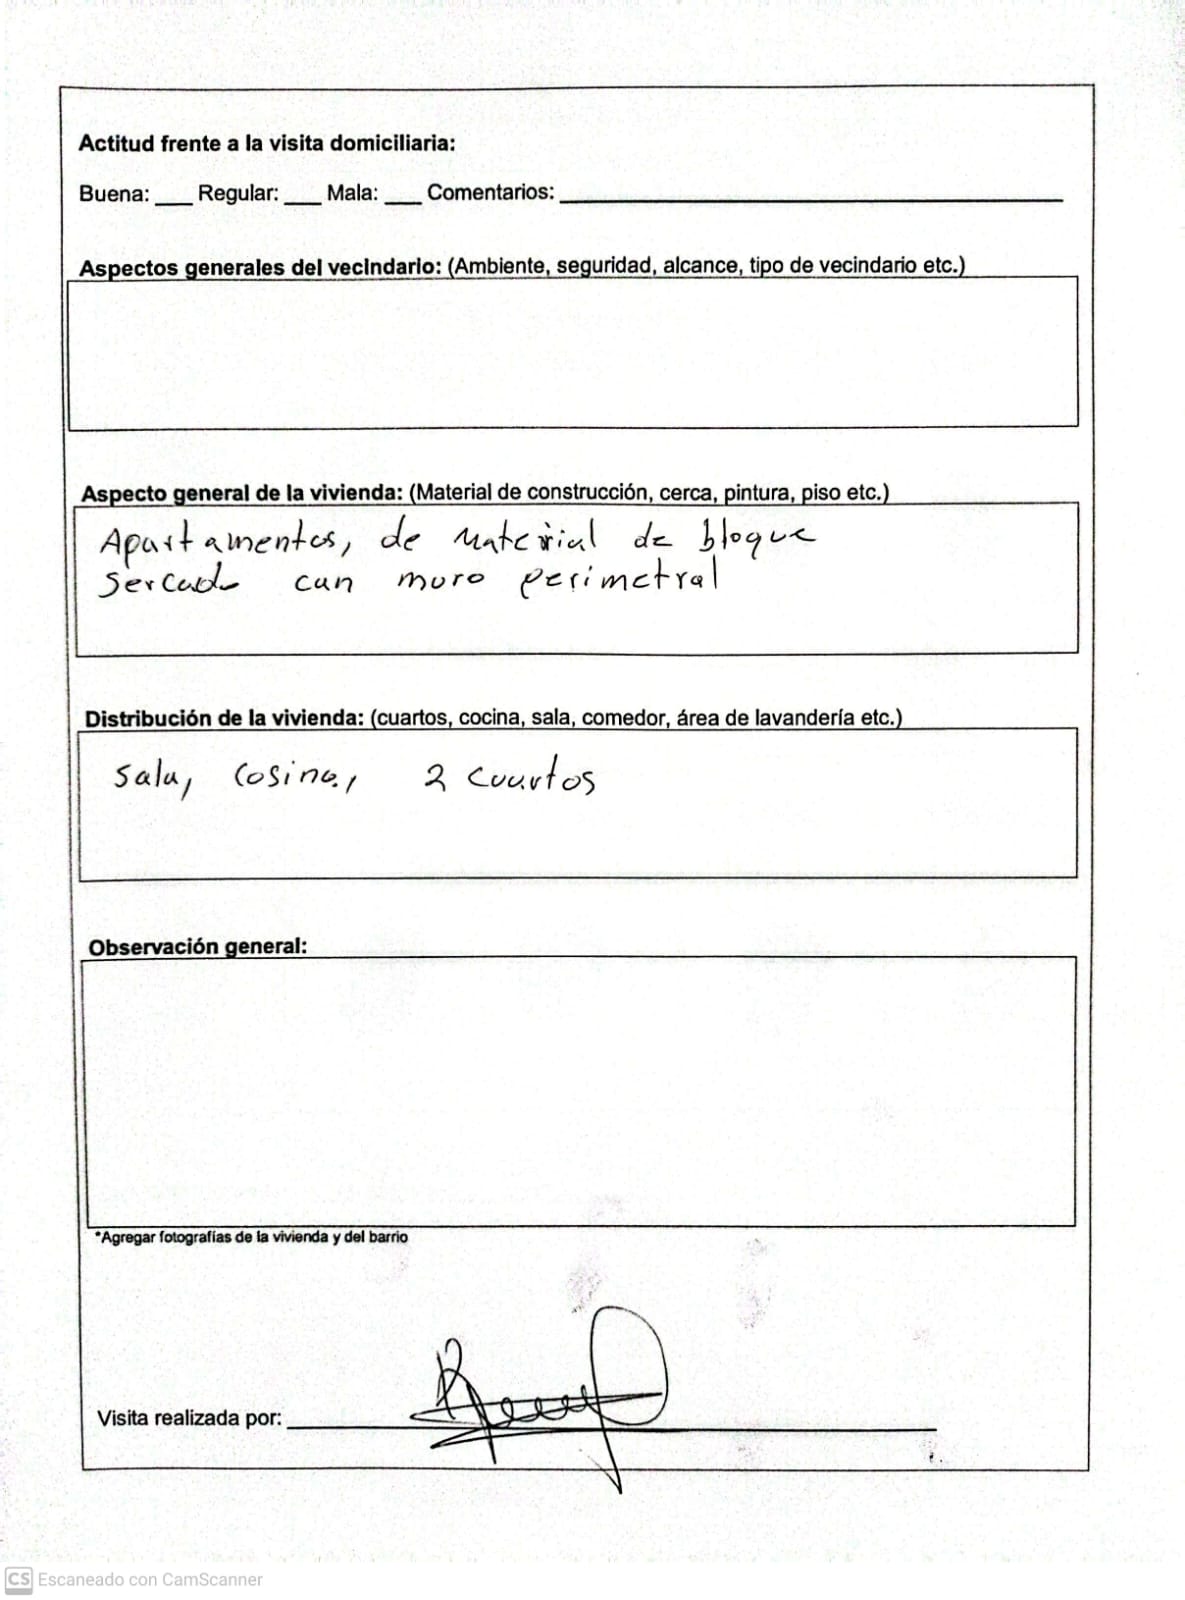 Actitud frente a la visita domiciliaria:
Buena: ___ Regular: ___ Mala: ___ Comentarios: ___
Aspectos generales del vecindario: (Ambiente, seguridad, alcance, tipo de vecindario etc.)
Aspecto general de la vivienda: (Material de construcción, cerca, pintura, piso etc.)
Apartamentos, de material de bloque
sercado con muro perimetral
Distribución de la vivienda: (cuartos, cocina, sala, comedor, área de lavandería etc.)
sala, cosina, 2 cuartos
Observación general:
*Agregar fotografías de la vivienda y del barrio
Visita realizada por:
CS Escaneado con CamScanner